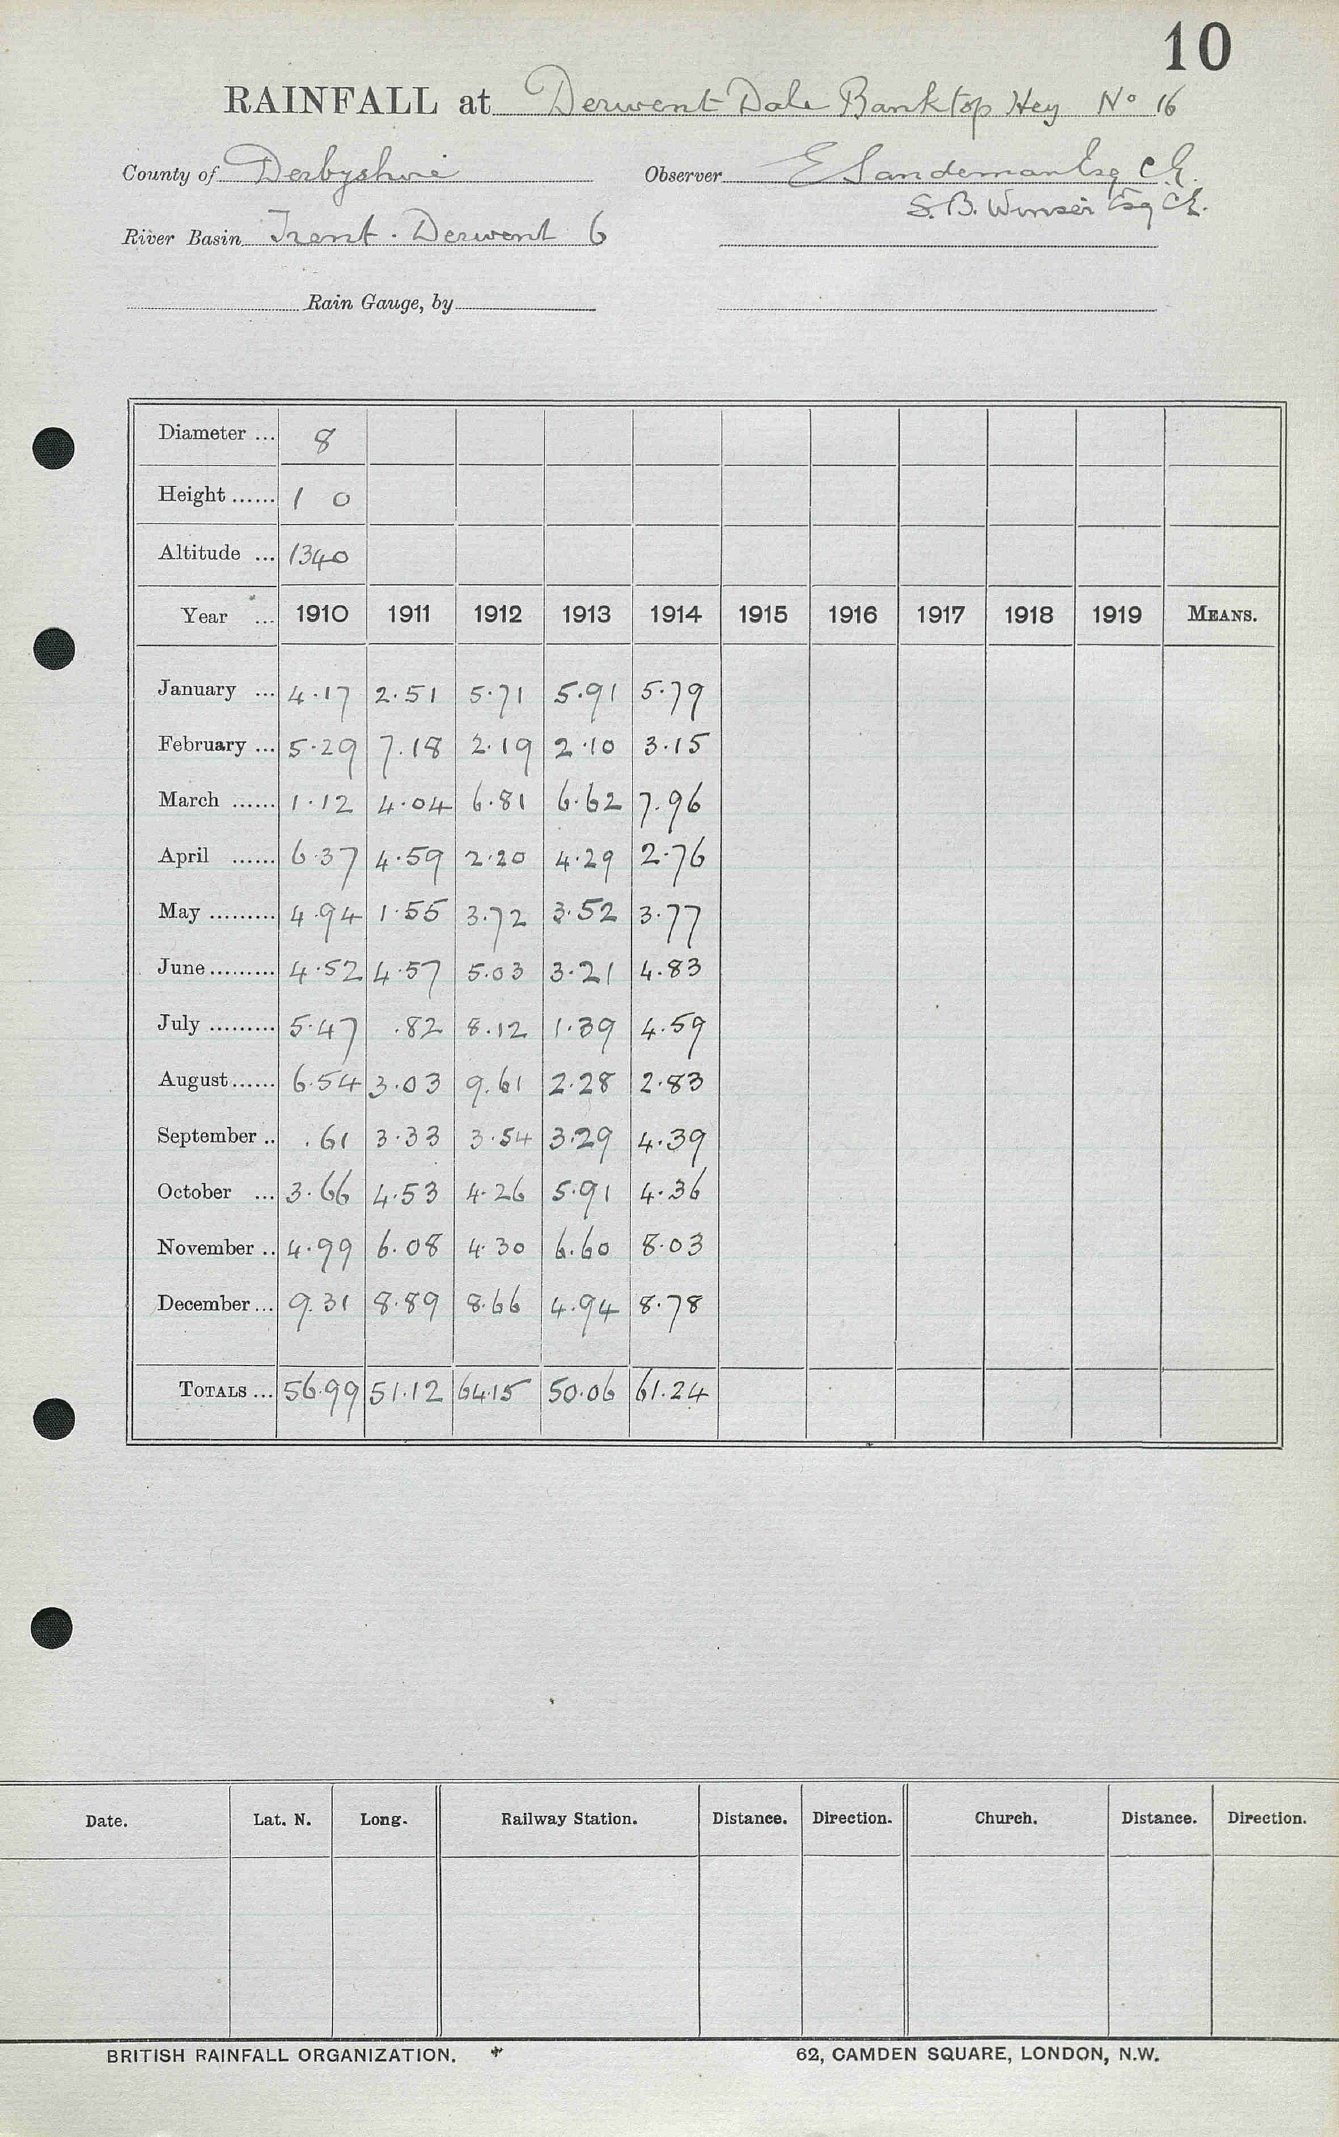 10
RAINFALL at Derwent Dale Banktop Hey No 16
County of Derbyshire Observer E Sandeman Esq C.E.
S. B. Winser Esq C.E.
River Basin Trent. Derwent 6
Rain Gauge, by
Diameter ... 8
Height ...... 1 0
Altitude ... 1340
Year ... 1910 1911 1912 1913 1914 1915 1916 1917 1918 1919 MEANS.
January ... 4.17 2.51 5.71 5.91 5.79
February ... 5.29 7.18 2.19 2.10 3.15
March ...... 1.12 4.04 6.81 6.62 7.96
April ...... 6.37 4.59 2.20 4.29 2.76
May ......... 4.94 1.55 3.72 3.52 3.77
June ......... 4.52 4.57 5.03 3.21 4.83
July ......... 5.47 .82 8.12 1.39 4.59
August ...... 6.54 3.03 9.61 2.28 2.83
September .. .61 3.33 3.54 3.29 4.39
October ... 3.66 4.53 4.26 5.91 4.36
November .. 4.99 6.08 4.30 6.60 8.03
December ... 9.31 8.89 8.66 4.94 8.78
TOTALS ... 56.99 51.12 64.15 50.06 61.24
Date. Lat. N. Long. Railway Station. Distance. Direction. Church. Distance. Direction.
BRITISH RAINFALL ORGANIZATION. 62, CAMDEN SQUARE, LONDON, N.W.